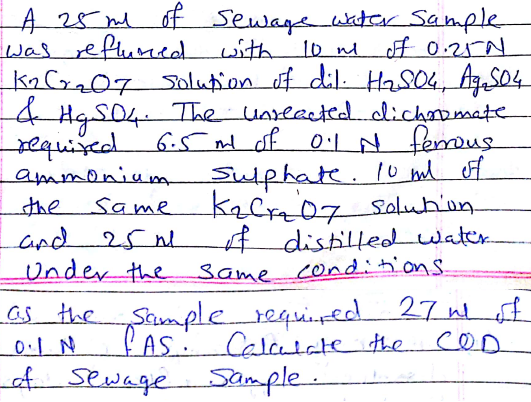 A 25 ml of Sewage water Sample
was refluxed with 10 ml of 0.25N
K2Cr2O7 Solution of dil. H2SO4, Ag2SO4
& HgSO4. The unreacted dichromate
required 6.5 ml of 0.1 N ferrous
ammonium Sulphate. 10 ml of
the same K2Cr2O7 solution
and 25 ml of distilled water
Under the same conditions
as the sample required 27 ml of
0.1 N FAS. Calculate the COD
of Sewage Sample.